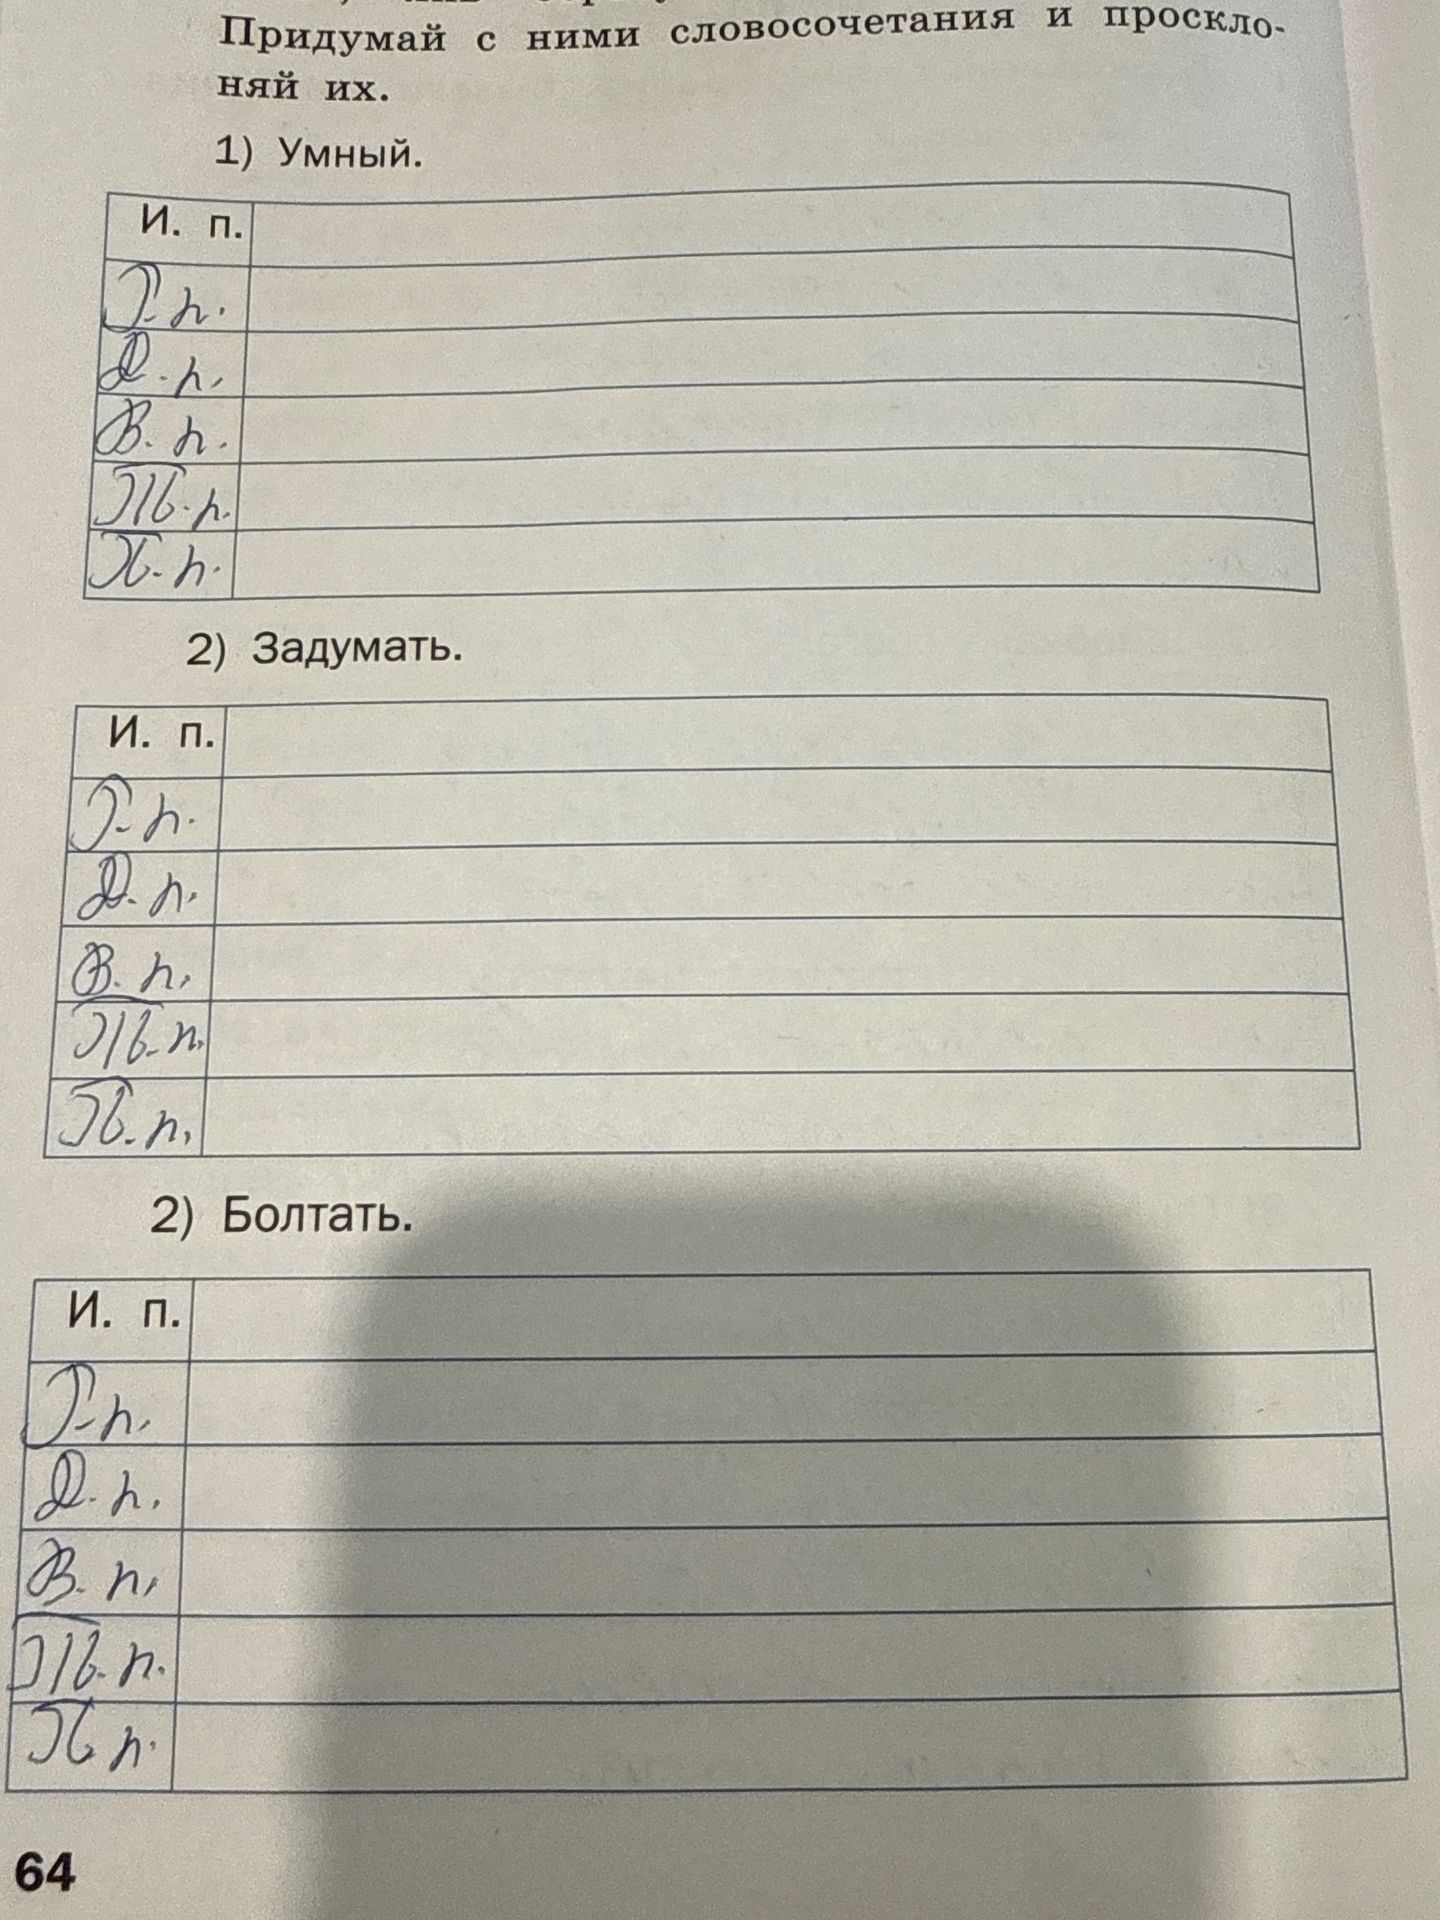 Придумай с ними словосочетания и просклo-
няй их.
1) Умный.
И. п.
Р. п.
Д. п.
В. п.
Тв. п.
П. п.
2) Задумать.
И. п.
Р. п.
Д. п.
В. п.
Тв. п.
П. п.
2) Болтать.
И. п.
Р. п.
Д. п.
В. п.
Тв. п.
П п.
64